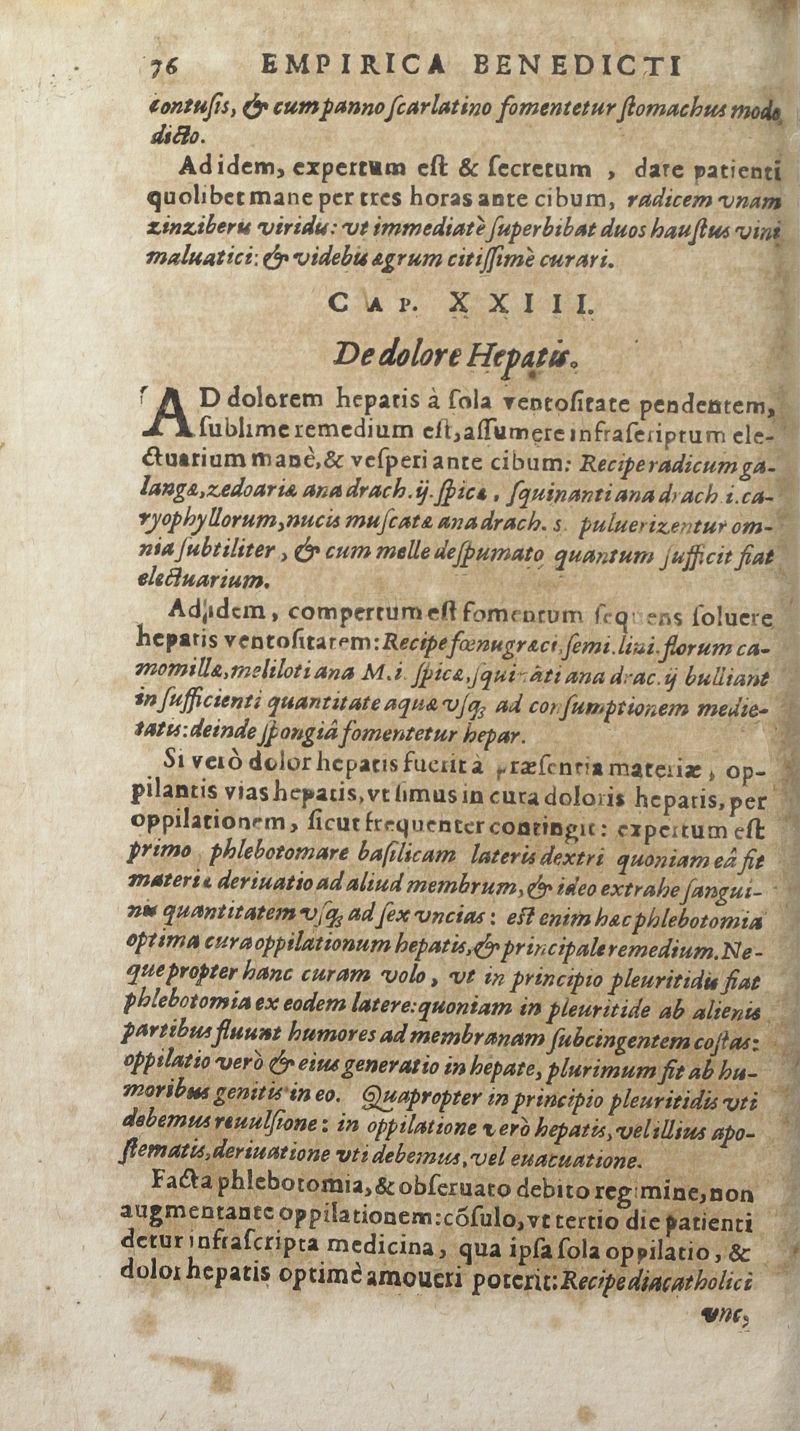 76 EMPIRICA BENEDICTI
contuſis, & cum panno ſcarlatino fomentetur ſtomachus modo
dicto.
Ad idem, expertum eſt & ſecretum , dare patienti
quolibet mane per tres horas ante cibum, radicem vnam
zinziberis viridis: vt immediatè ſuperbibat duos hauſtus vini
maluatici: & videbis ægrum citiſſimè curari.
CAP. XXIII.
De dolore Hepatis.
AD dolorem hepatis à ſola ventoſitate pendentem,
ſublime remedium eſt, aſſumere infraſcriptum ele-
ctuarium manè, & veſperi ante cibum: Recipe radicum ga-
langæ, zedoariæ ana drach. ij. ſpicæ, ſquinanti ana drach i. ca-
ryophyllorum, nucis muſcatæ ana drach. s. puluerizentur om-
nia ſubtiliter, & cum melle deſpumato quantum ſufficit fiat
electuarium.
Ad idem, compertum eſt fomentum ſequens ſoluere
hepatis ventoſitatem: Recipe fœnugræci ſemi. lini. florum ca-
momillæ, meliloti ana M. i. ſpicæ, ſquinãti ana drac. ij bulliant
in ſufficienti quantitate aquæ vſq; ad conſumptionem medie-
tatis: deinde ſpongiâ fomentetur hepar.
Si verò dolor hepatis fuerit à præſentia materiæ, op-
pilantis vias hepatis, vt ſimus in cura doloris hepatis, per
oppilationem, ſicut frequenter contingit: expertum eſt
primo phlebotomare baſilicam lateris dextri quoniam eâ fit
materiæ deriuatio ad aliud membrum, & ideo extrahe ſangui-
nis quantitatem vſq; ad ſex vncias: eſt enim hæc phlebotomia
optima cura oppilationum hepatis, & principale remedium. Ne-
que propter hanc curam volo, vt in principio pleuritidis fiat
phlebotomia ex eodem latere: quoniam in pleuritide ab alienis
partibus fluunt humores ad membranam ſubcingentem coſtas:
oppilatio verò & eius generatio in hepate, plurimum fit ab hu-
moribus genitis in eo. Quapropter in principio pleuritidis vti
debemus reuulſione: in oppilatione verò hepatis, vel illius apo-
ſtematis, deriuatione vti debemus, vel euacuatione.
Facta phlebotomia, & obſeruato debito regimine, non
augmentante oppilationem: cõſulo, vt tertio die patienti
detur infraſcripta medicina, qua ipſa ſola oppilatio, &
dolor hepatis optimè amoueri poterit: Recipe diacatholici
vnc,